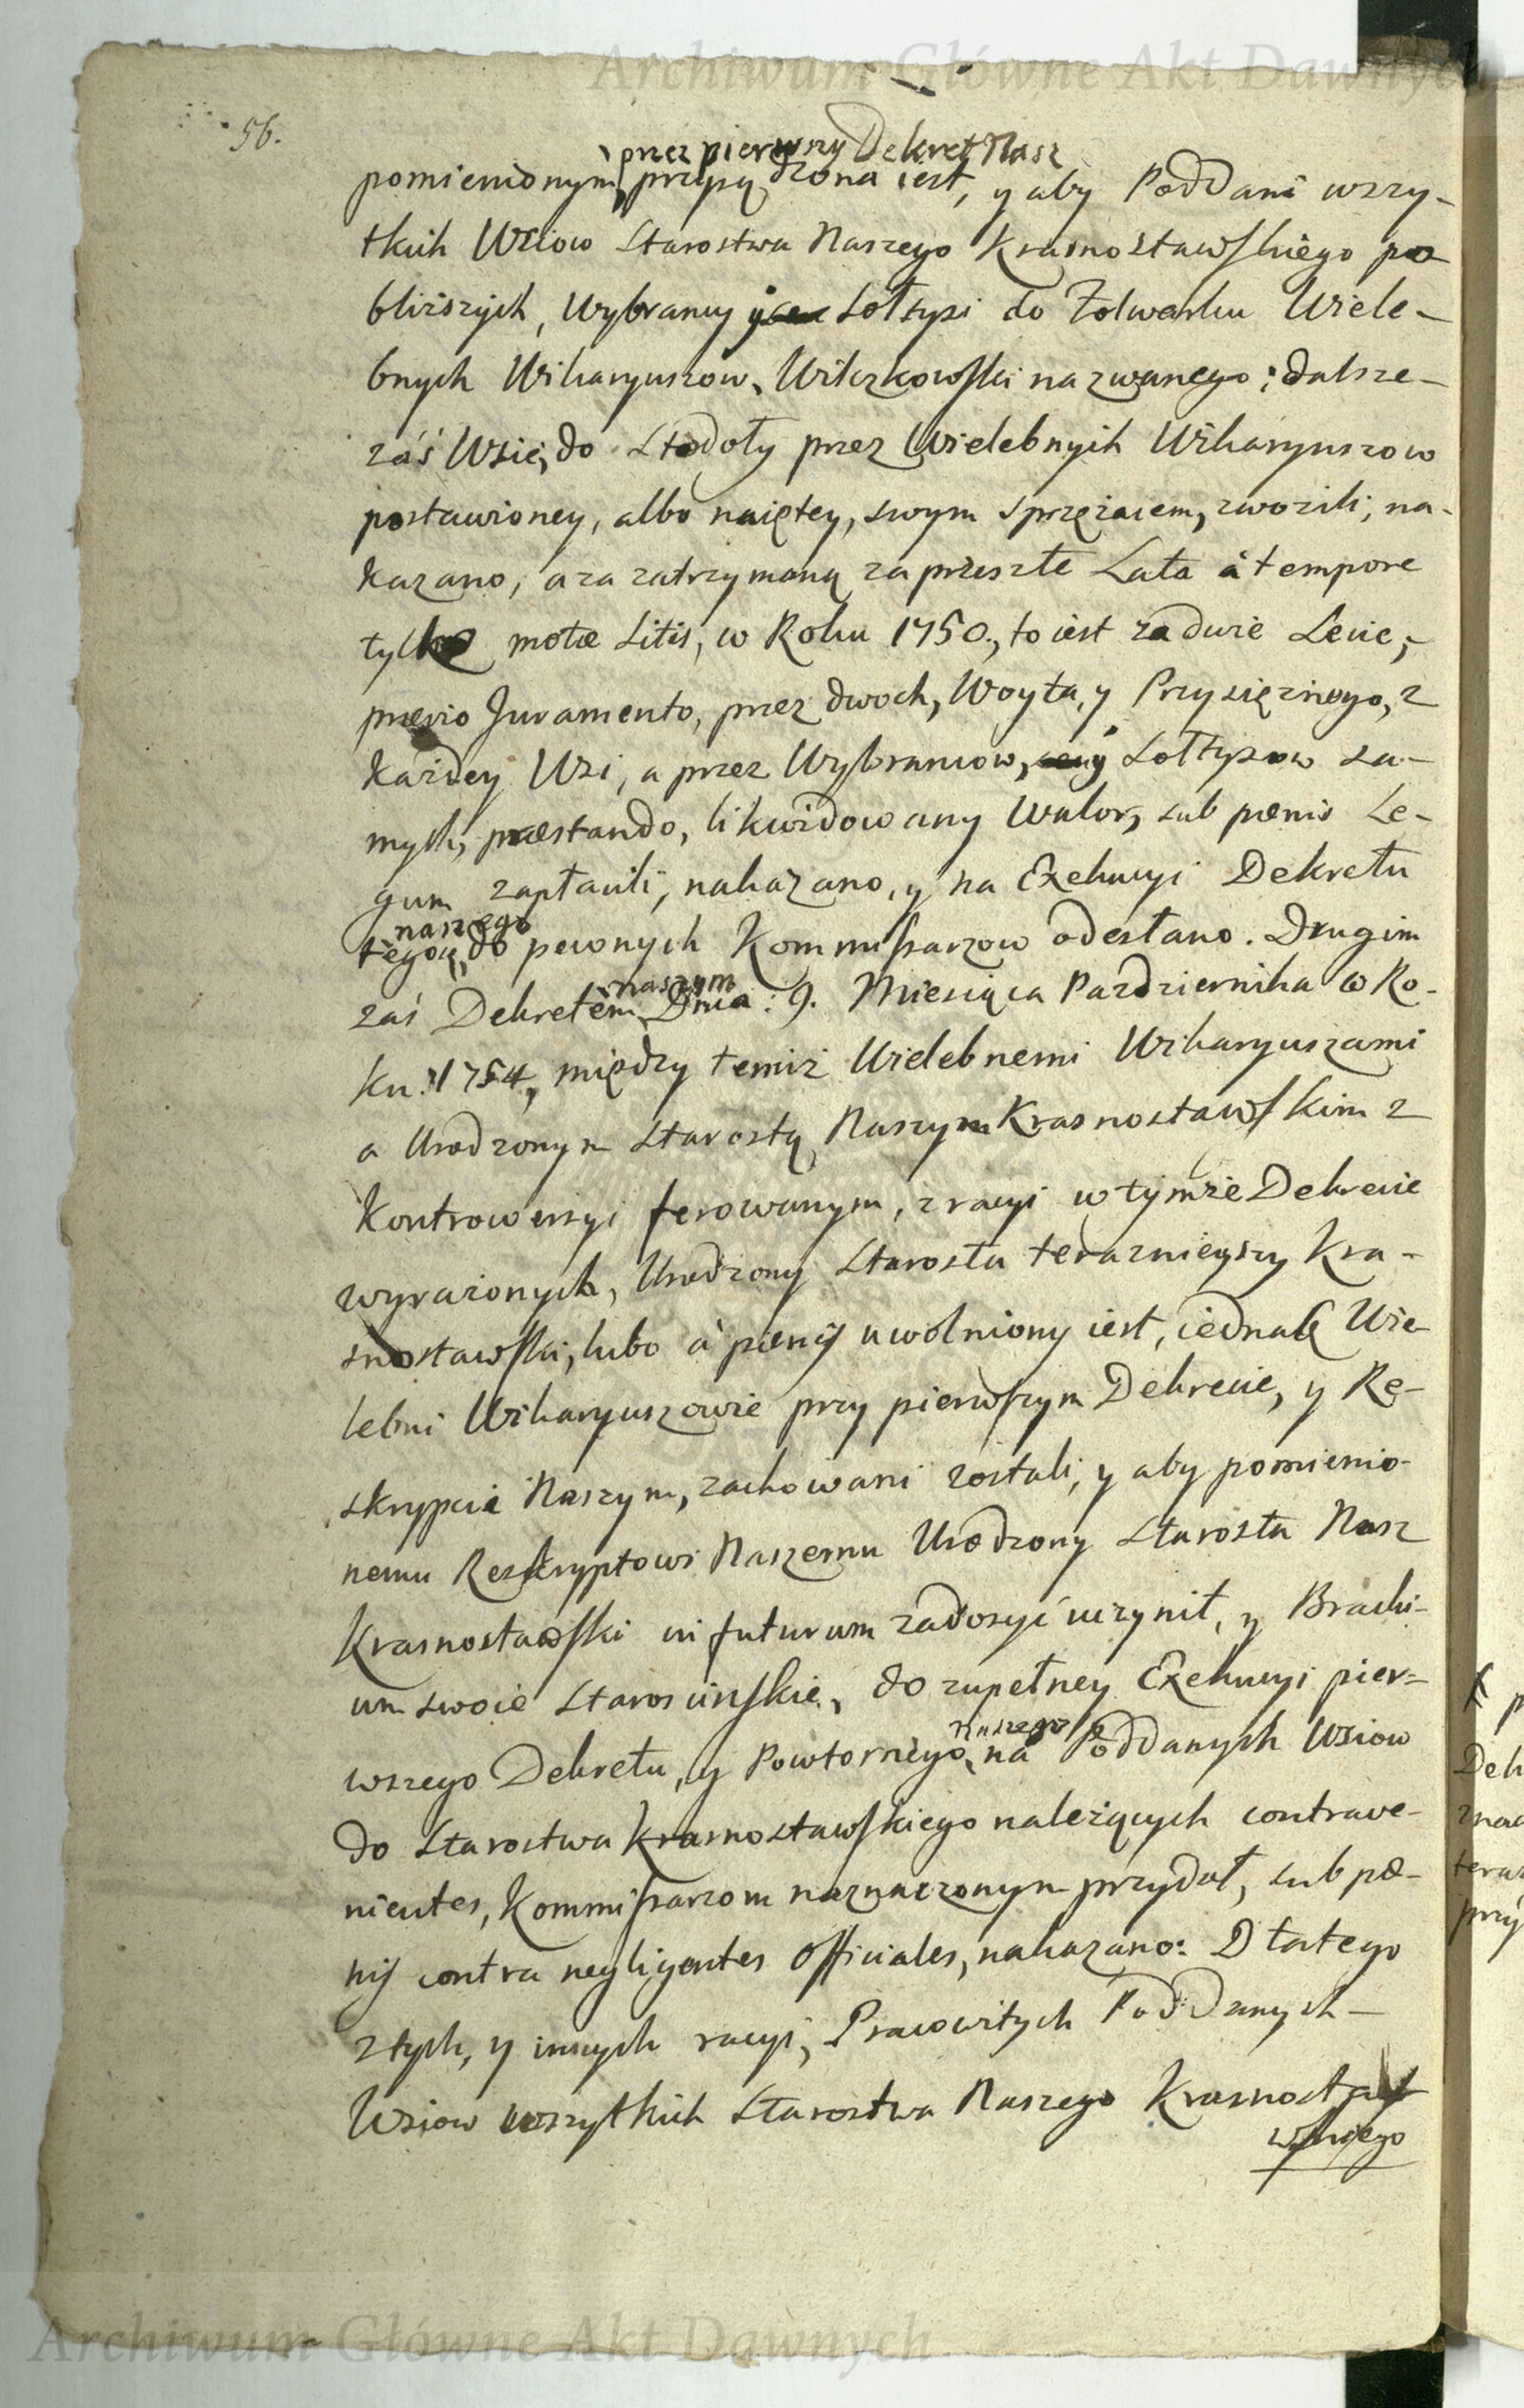 Archiwum Główne Akt Dawnych
56.
przez pierwszy Dekret Nasz
pomienionym, przysądzona iest, y aby Poddani wszy-
tkich Wsiow Starostwa Naszego Krasnostawskiego po
bliższych, Wybrancy y Sołtysi do Folwarku Wiele-
bnych Wikaryuszow, Wilczkowski nazwanego; dalsze-
zaś Wsie, do Stodoły przez Wielebnych Wikaryuszow
postawioney, albo naiętey, swym sprzężaiem, zwozili, na-
kazano, a za zatrzymaną za przeszłe Lata à tempore
tylko motæ Litis, w Roku 1750., to iest za dwie Lecie,
prævio Juramento, przez dwoch, Woyta, y Przysiężnego, z
każdey Wsi, a przez Wybrancow, y Sołtysow sa-
mych, præstando, likwidowany Walor, sub pœnis Le-
gum zapłacili, nakazano, y na Exekucyi Dekretu
naszego
tegoż, do pewnych Kommissarzow odesłano. Drugim
naszym
zaś Dekretem, Dnia: 9. Miesiąca Pazdziernika w Ro-
ku: 1754, między temiż Wielebnemi Wikaryuszami
a Urodzonym Starostą Naszym Krasnostawskim z
Kontrowersyi ferowanym, z racyi w tymże Dekrecie
wyrażonych, Urodzony Starosta terazniejszy Kra-
snostawski, lubo à pœnis uwolniony iest, iednak Wie
lebni Wikaryuszowie przy pierwszym Dekrecie, y Re-
skrypcie Naszym, zachowani zostali, y aby pomienio-
nemu Reskryptowi Naszemu Urodzony Starosta Nasz
Krasnostawski in futurum zadosyć uczynił, y Brachi-
um swoie Starościnskie, do zupełney Exekucyi pier-
naszego
wszego Dekretu, y Powtornego, na Poddanych Wsiow
do Starostwa Krasnostawskiego należących contrave-
nientes, Kommissarzom naznaczonym przydał, sub pœ-
nis contra negligentes Officiales, nakazano: Dlatego
z tych, y innych racyi, Pracowitych Poddanych-
Wsiow wszytkich Starostwa Naszego Krasnosta
wskiego
Archiwum Główne Akt Dawnych